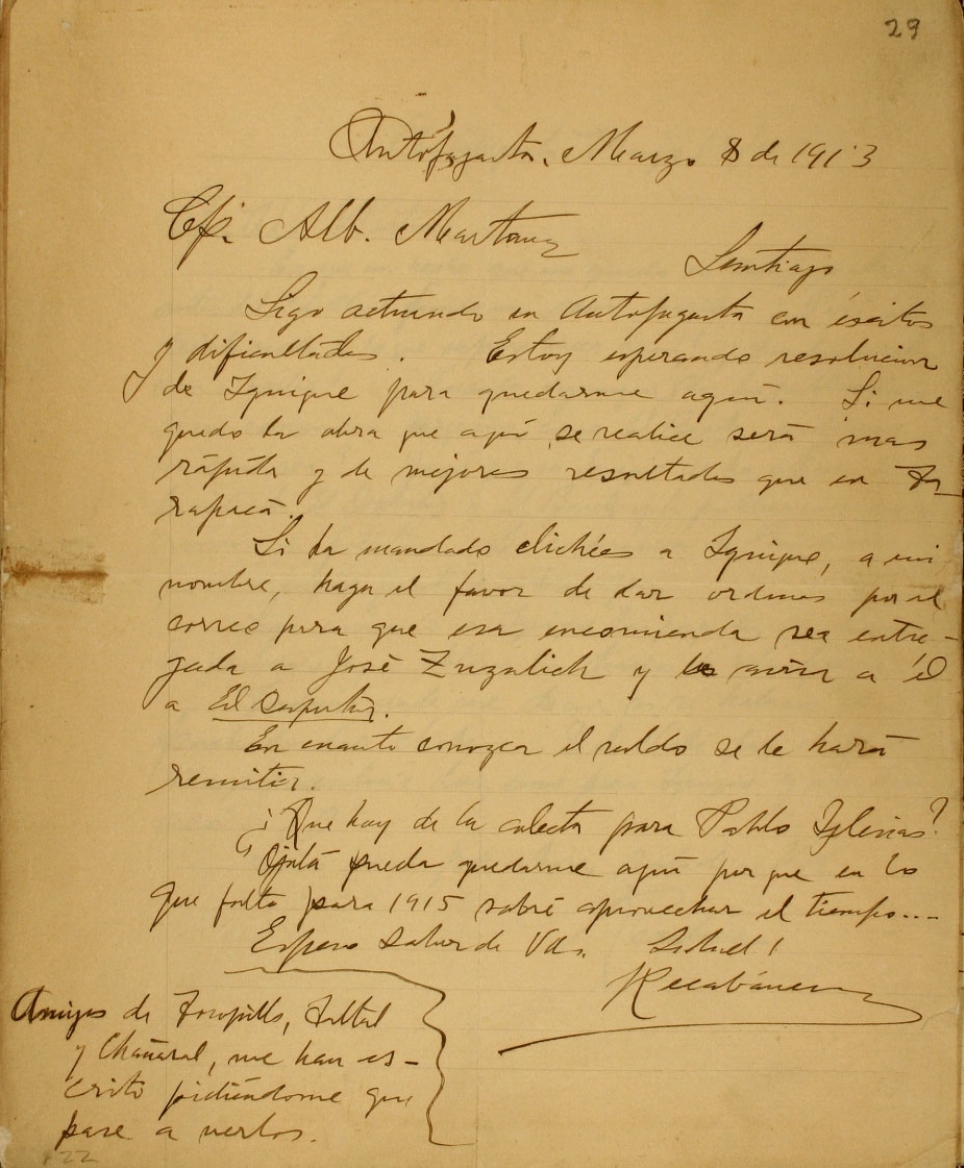 29
Antofagasta, Marzo 8 de 1913
Cp. Alb. Martinez
Santiago
Sigo actuando en Antofagasta con écsitos
y dificultades. Estoy esperando resolucion
de Iquique para quedarme aquí. Si me
quedo la obra que aquí se realice será mas
rápida y de mejores resultados que en Ta-
rapacá.
Si ha mandado clichées a Iquique, a mi
nombre, haga el favor de dar ordenes por el
correo para que esa encomienda sea entre-
gada a José Zuzulich y avise a él
a El Despertar.
En cuanto conozca el saldo se le hará
remitir.
¿Que hay de la colecta para Pablo Iglesias?
Ojalá pueda quedarme aquí porque en lo
que falta para 1915 sabré aprovechar el tiempo...
Espero saber de Vds. Salud!
Recabarren
Amigos de Tocopilla, Taltal
y Chañaral, me han es-
crito pidiéndome que
pase a verlos.
22